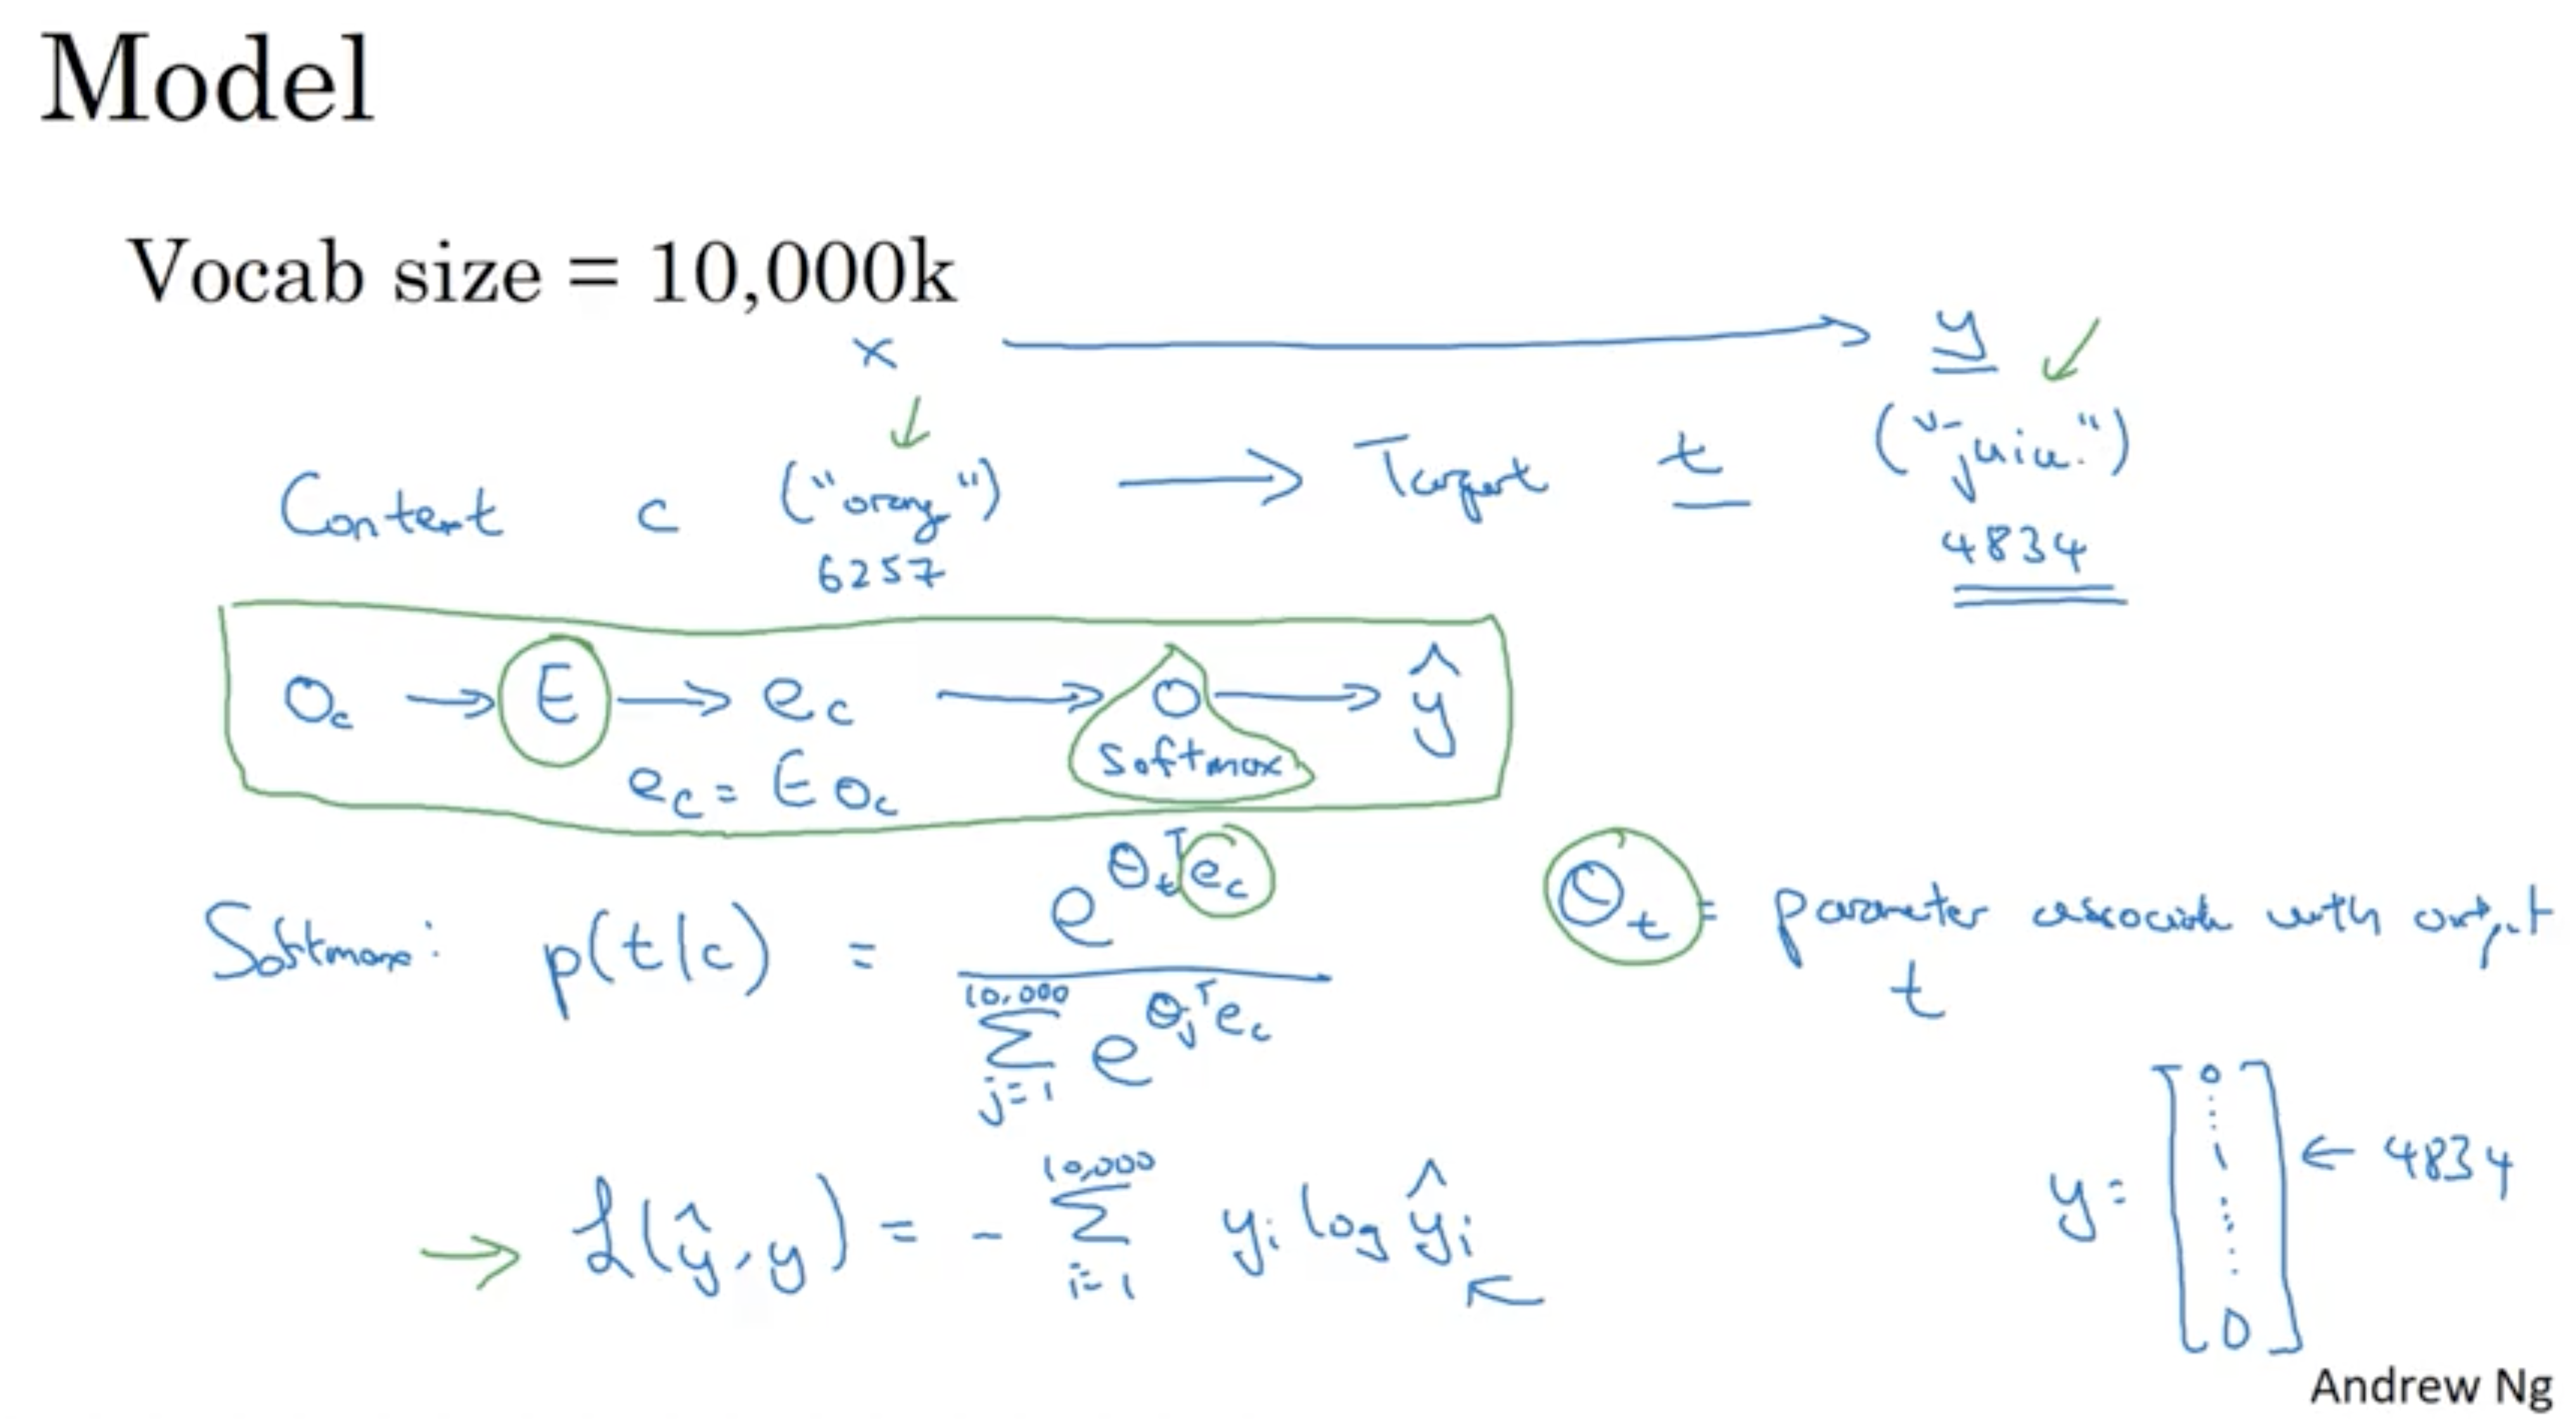 Model
Vocab size = 10,000k
x → y
Content c ("orange") → Target t ("juice")
6257
4834
O_c → E → e_c → O → ŷ
Softmax
e_c = E O_c
Softmax: p(t|c) = e^{θ_t^T e_c} / Σ_{j=1}^{10,000} e^{θ_j^T e_c}
θ_t = parameter associated with output
t
ℒ(ŷ, y) = - Σ_{i=1}^{10,000} y_i log ŷ_i
y = [0 ⋮ 1 ⋮ 0] ← 4834
Andrew Ng